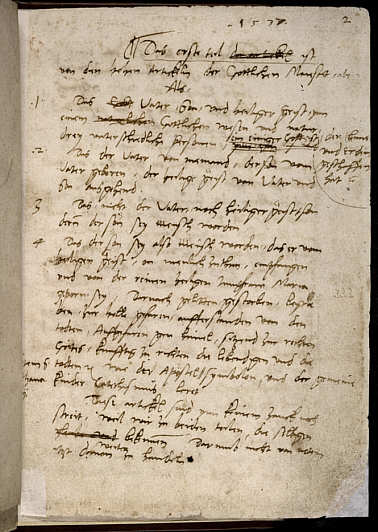 1537
2
Das erste teil ist
von den hohen Artickeln der Gottlichen Maiestet
Als
1 Das Vater, Son und heiliger geist ynn
einem Gottlichen wesen und natur
drey unterschiedliche personen ein einiger Gott ist der himel
und erden
geschaffen
hat
2 Das der Vater von niemand, der son vom
Vater geboren, der heilige geist vom Vater und
Son ausgehend
3 Das nicht der Vater, noch heiliger geist son
dern der son sey mensch worden
4 Das der son sey also mensch worden, das er vom
heiligen geist, on menlich zuthun, empfangen
und von der reinen heiligen Jungfrau Maria
geporn sey, Darnach gelitten, gestorben, begra
ben, zur helle gefaren, aufferstanden von den
todten, Auffgefaren gen himel, sitzend zur rechten
Gottes, kunfftig zu richten die lebendigen und die
todten wie der Apostel Symbolon, und der gemeine
kinder Catechismus leret
Diese artickel sind ynn keinem zanck noch
streit, weil wir zu beiden teilen, die selbigen
bekennen Darumb nicht von noten
itzt davon weiter zu handeln